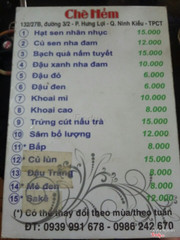 Chè Hẻm
132/27B, đường 3/2 - P. Hưng Lợi - Q. Ninh Kiều - TPCT
1 Hạt sen nhãn nhục 15.000
2 Củ sen nha đam 12.000
3 Bạch quả nấm tuyết 15.000
4 Đậu xanh nha đam 10.000
5 Đậu đỏ 6.000
6 Đậu đen 6.000
7 Khoai mì 10.000
8 Khoai môn 8.000
9 Trứng cút nấu trà 10.000
10 Sâm bổ lượng 12.000
11* Bắp 8.000
12* Củ lùn 15.000
13* Đậu Trắng 8.000
14* Mè đen 8.000
15* Sakê 12.000
(*) Có thể thay đổi theo mùa/theo tuần
ĐT: 0939 991 678 - 0986 242 670